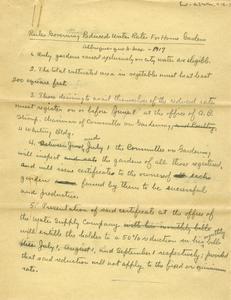 Rules Governing Reduced Water Rates For Home Gardens
Albuquerque N. Mex. - 1917
1. Only gardens must exclusively on city water are eligible.
2. The total cultivated area in vegetables must be at least
200 square feet.
3. Those desiring to avail themselves of the reduced rate
must register on or before at the office of A. B.
Stroup, chairman of Committee on Gardening,
4 Whiting Bldg.
4. July 1, the Committee on Gardening
will inspect the gardens of all those registered,
and will issue certificates to the owners of each
garden found by them to be successful
and productive.
5. Presentation of said certificate at the office of
the Water Supply Company with his monthly bills
will entitle the holder to a 50% reduction on bills
July 1, August 1, and September 1 respectively; provided
that said reduction will not apply to the fixed or minimum
rate.